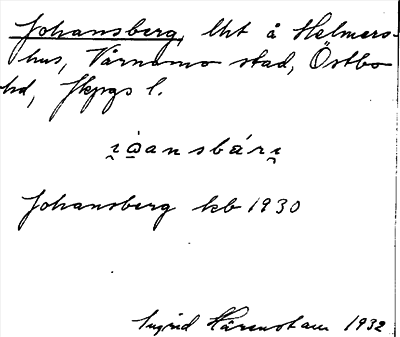 Johansberg, lht å Helmers-
hus, Värnamo stad, Östbo
hd, Jkpgs l.
i̯ò̱ansbárı̯
Johansberg kb 1930
Ingrid Härenstam 1932